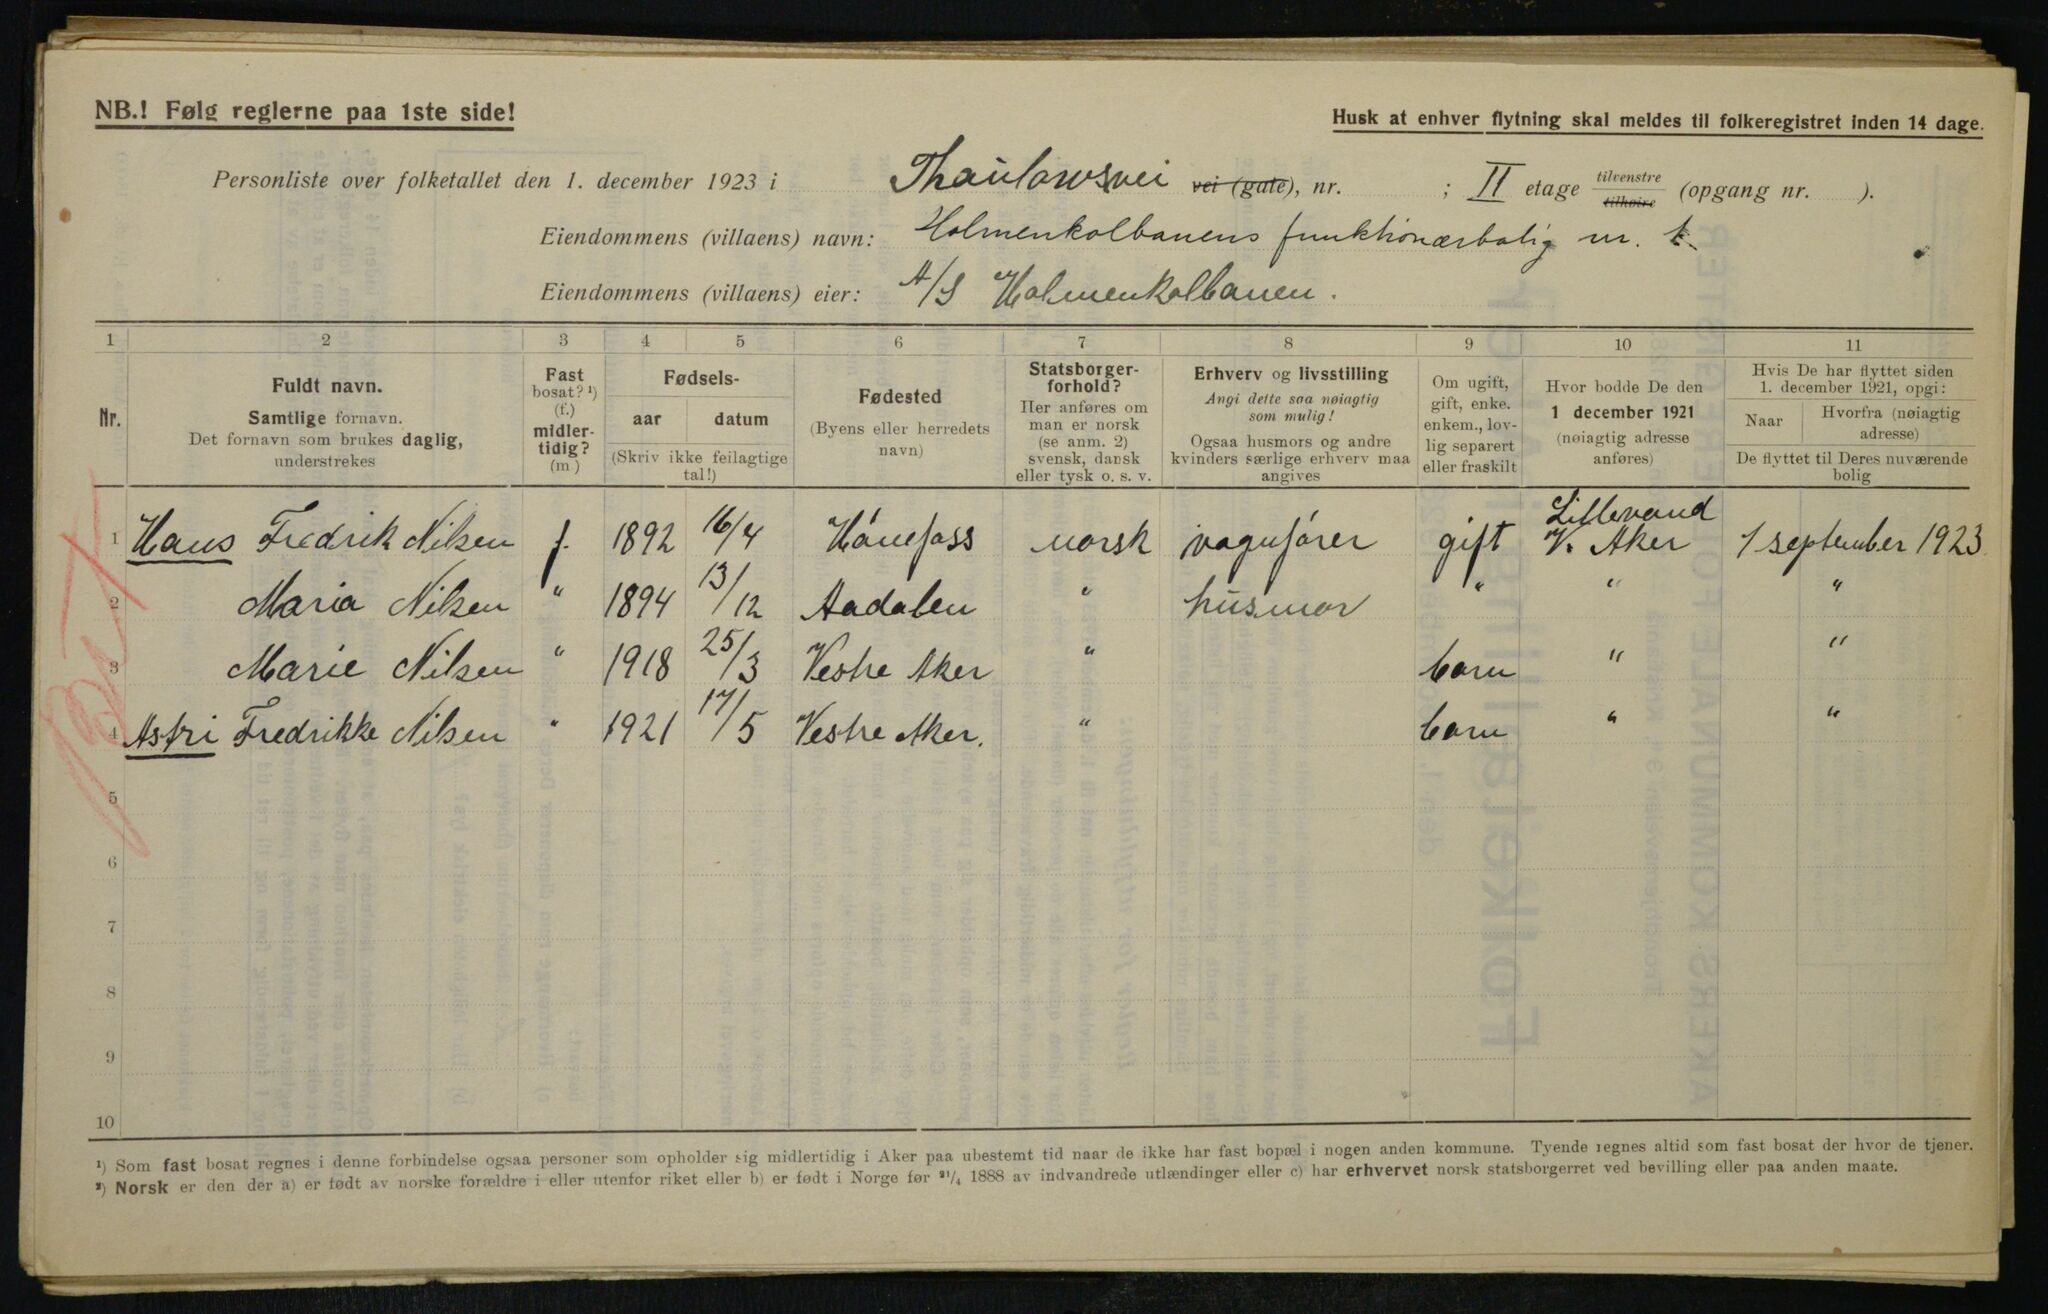 NB.! Følg reglerne paa 1ste side!
Husk at enhver flytning skal meldes til folkeregistret inden 14 dage.
Personliste over folketallet den 1. december 1923 i Thaulowsvei vei (gate), nr. ; II etage tilvenstre tilhøire (opgang nr. ).
Eiendommens (villaens) navn: Holmenkolbanens funktionærbolig nr.
Eiendommens (villaens) eier: A/S Holmenkolbanen.
1 2 3 4 5 6 7 8 9 10 11
Nr.
Fuldt navn.
Samtlige fornavn.
Det fornavn som brukes daglig,
understrekes
Fast
bosat? ¹)
(f.)
midler-
tidig?
(m.)
Fødsels-
aar datum
(Skriv ikke feilagtige
tal!)
Fødested
(Byens eller herredets
navn)
Statsborger-
forhold?
Her anføres om
man er norsk
(se anm. 2)
svensk, dansk
eller tysk o. s. v.
Erhverv og livsstilling
Angi dette saa nøiagtig
som mulig!
Ogsaa husmors og andre
kvinders særlige erhverv maa
angives
Om ugift,
gift, enke.
enkem., lov-
lig separert
eller fraskilt
Hvor bodde De den
1 december 1921
(nøiagtig adresse
anføres)
Hvis De har flyttet siden
1. december 1921, opgi:
Naar Hvorfra (nøiagtig
adresse)
De flyttet til Deres nuværende
bolig
1 Hans Fredrik Nilsen f. 1892 16/4 Hønefoss norsk vognfører gift Lillevand V. Aker 1 september 1923
2 Maria Nilsen " 1894 13/12 Aadalen " husmor " " "
3 Marie Nilsen " 1918 25/3 Vestre Aker " barn " "
4 Astri Fredrikke Nilsen " 1921 17/5 Vestre Aker. " barn " "
5
6
7
8
9
10
¹) Som fast bosat regnes i denne forbindelse ogsaa personer som opholder sig midlertidig i Aker paa ubestemt tid naar de ikke har fast bopæl i nogen anden kommune. Tyende regnes altid som fast bosat der hvor de tjener.
²) Norsk er den der a) er født av norske forældre i eller utenfor riket eller b) er født i Norge før ²¹/₄ 1888 av indvandrede utlændinger eller c) har erhvervet norsk statsborgerret ved bevilling eller paa anden maate.